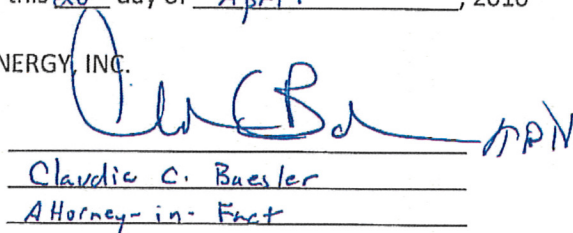 this 20 day of April, 2016
NERGY, INC.
Claudia C. Baesler
Attorney-in-Fact